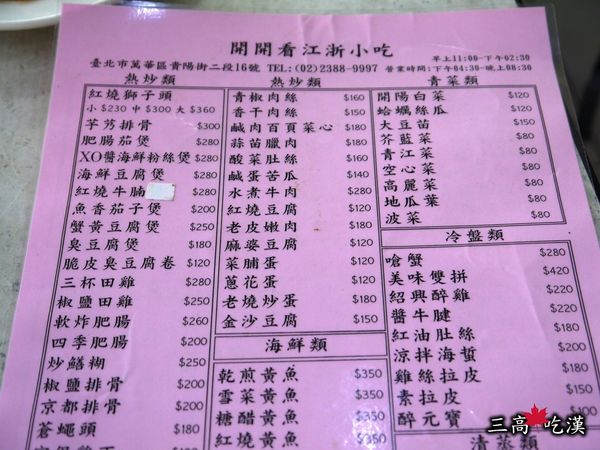 開開看江浙小吃
臺北市萬華區貴陽街二段16號 TEL:(02)2388-9997 營業時間:早上11:00-下午02:30
下午04:30-晚上08:30
熱炒類
紅燒獅子頭
小$230 中$300 大$360
芋艿排骨 $300
肥腸茄煲 $280
XO醬海鮮粉絲煲 $280
海鮮豆腐煲 $280
紅燒牛腩 $280
魚香茄子煲 $200
蟹黃豆腐煲 $250
臭豆腐煲 $180
脆皮臭豆腐卷 $120
三杯田雞 $250
椒鹽田雞 $250
軟炸肥腸 $260
四季肥腸 $200
炒鱔糊 $250
椒鹽排骨 $200
京都排骨 $200
蒼蠅頭 $180
熱炒類
青椒肉絲 $160
香干肉絲 $150
鹹肉百頁菜心 $180
蒜苗臘肉 $180
酸菜肚絲 $160
鹹蛋苦瓜 $140
水煮牛肉 $280
紅燒豆腐 $120
老皮嫩肉 $180
麻婆豆腐 $120
菜脯蛋 $120
蔥花蛋 $120
老燒炒蛋 $180
金沙豆腐 $150
海鮮類
乾煎黃魚 $350
雪菜黃魚 $350
糖醋黃魚 $350
紅燒黃魚 $350
青菜類
開陽白菜 $120
蛤蠣絲瓜 $120
大豆苗 $150
芥藍菜 $80
青江菜 $80
空心菜 $80
高麗菜 $80
地瓜葉 $80
菠菜 $80
冷盤類
嗆蟹 $280
美味雙拼 $420
紹興醉雞 $220
醬牛腱 $220
紅油肚絲 $180
涼拌海蜇 $180
雞絲拉皮 $150
素拉皮 $120
醉元寶 $100
清蒸類
三高 吃漢